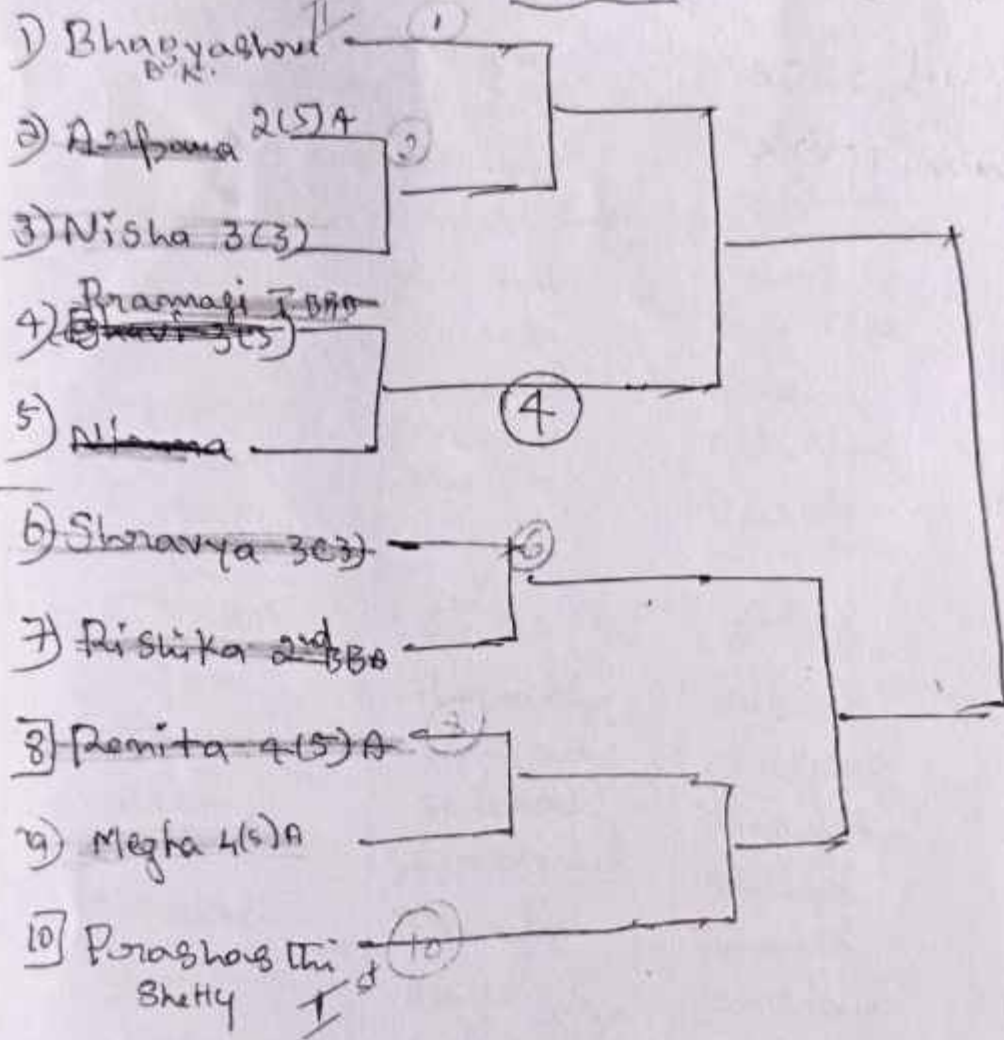 1) Bhagyashree II (1)
B.K.
2) Arpana 2(5)A (2)
3) Nisha 3(3)
Pramagi I BBA
4) 3(3)
5)
(4)
6) Shravya 3(3) (6)
7) Rishika 2nd BBA
8) Remita 4(5)A (8)
9) Megha 4(5)A
10) Prashasthi (10)
Shetty I